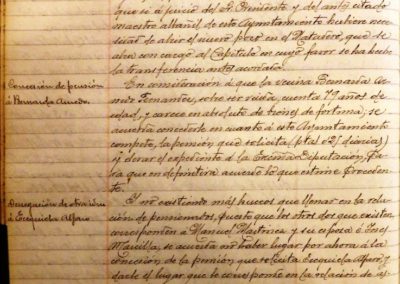 que si á juicio del Sr. Presidente y del antes citado
maestro albañil de este Ayuntamiento hubiere nece-
sidad de abrir el nuevo pozo en el Matadero, que se
abra con cargo al Capítulo en cuyo favor se ha hecho
la transferencia antes acordada.
Concesión de pensión
á Bernarda
En consideración á que la vecina Bernarda
Fernandez, sobre ser viuda, cuenta 79 años de
edad, y carece en absoluto de bienes de fortuna, se
acuerda concederle en cuanto á este Ayuntamiento
compete, la pensión que solicita
y elevar el expediento á la Excma Diputación, pa-
ra que en definitiva acuerde lo que estime proceden-
te.
Denegación de otra idem
á Ezequiela Alfaro
Y no existiendo más huecos que llenar en la rela-
ción de pensionados, puesto que los otros dos que existen
corresponden á Manuel y su esposa á José
se acuerda no haber lugar por ahora á la
concesión de la pensión que solicita Ezequiela Alfaro, y
darle el lugar que le corresponde en la relación de as-